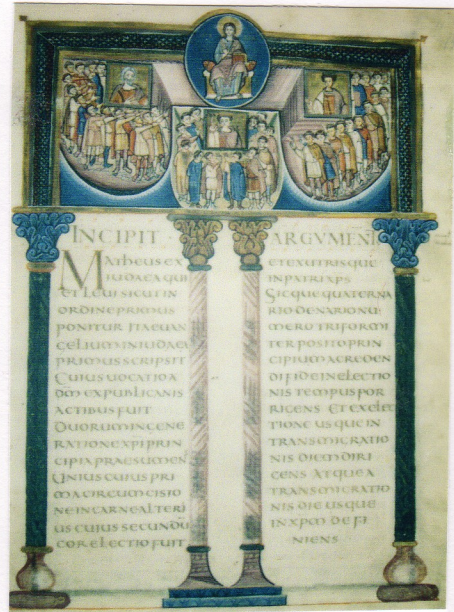 INCIPIT ARGVMENT
Matheus ex
iudaea qui
et Leui sicut in
ordine primus
ponitur ita euan
gelium in iudaea
primus scripsit
Cuius uocatio ad
dm̄ ex publicanis
actibus fuit
Duorum in gene
ratione xp̄i prin
cipia praesumens
Unius cuius pri
ma circumcisio
ne in carne alteri
us cuius secundū
cor electio fuit
et ex utrisque
in patri xp̄s
Sicque quaterna
rio denario nu
mero triformi
ter posito prin
cipium a creden
di fide in electio
nis tempus por
rigens et ex elec
tione usque in
transmigratio
nis diem diri
gens atque a
transmigratio
nis die usque
in xp̄m defi
niens